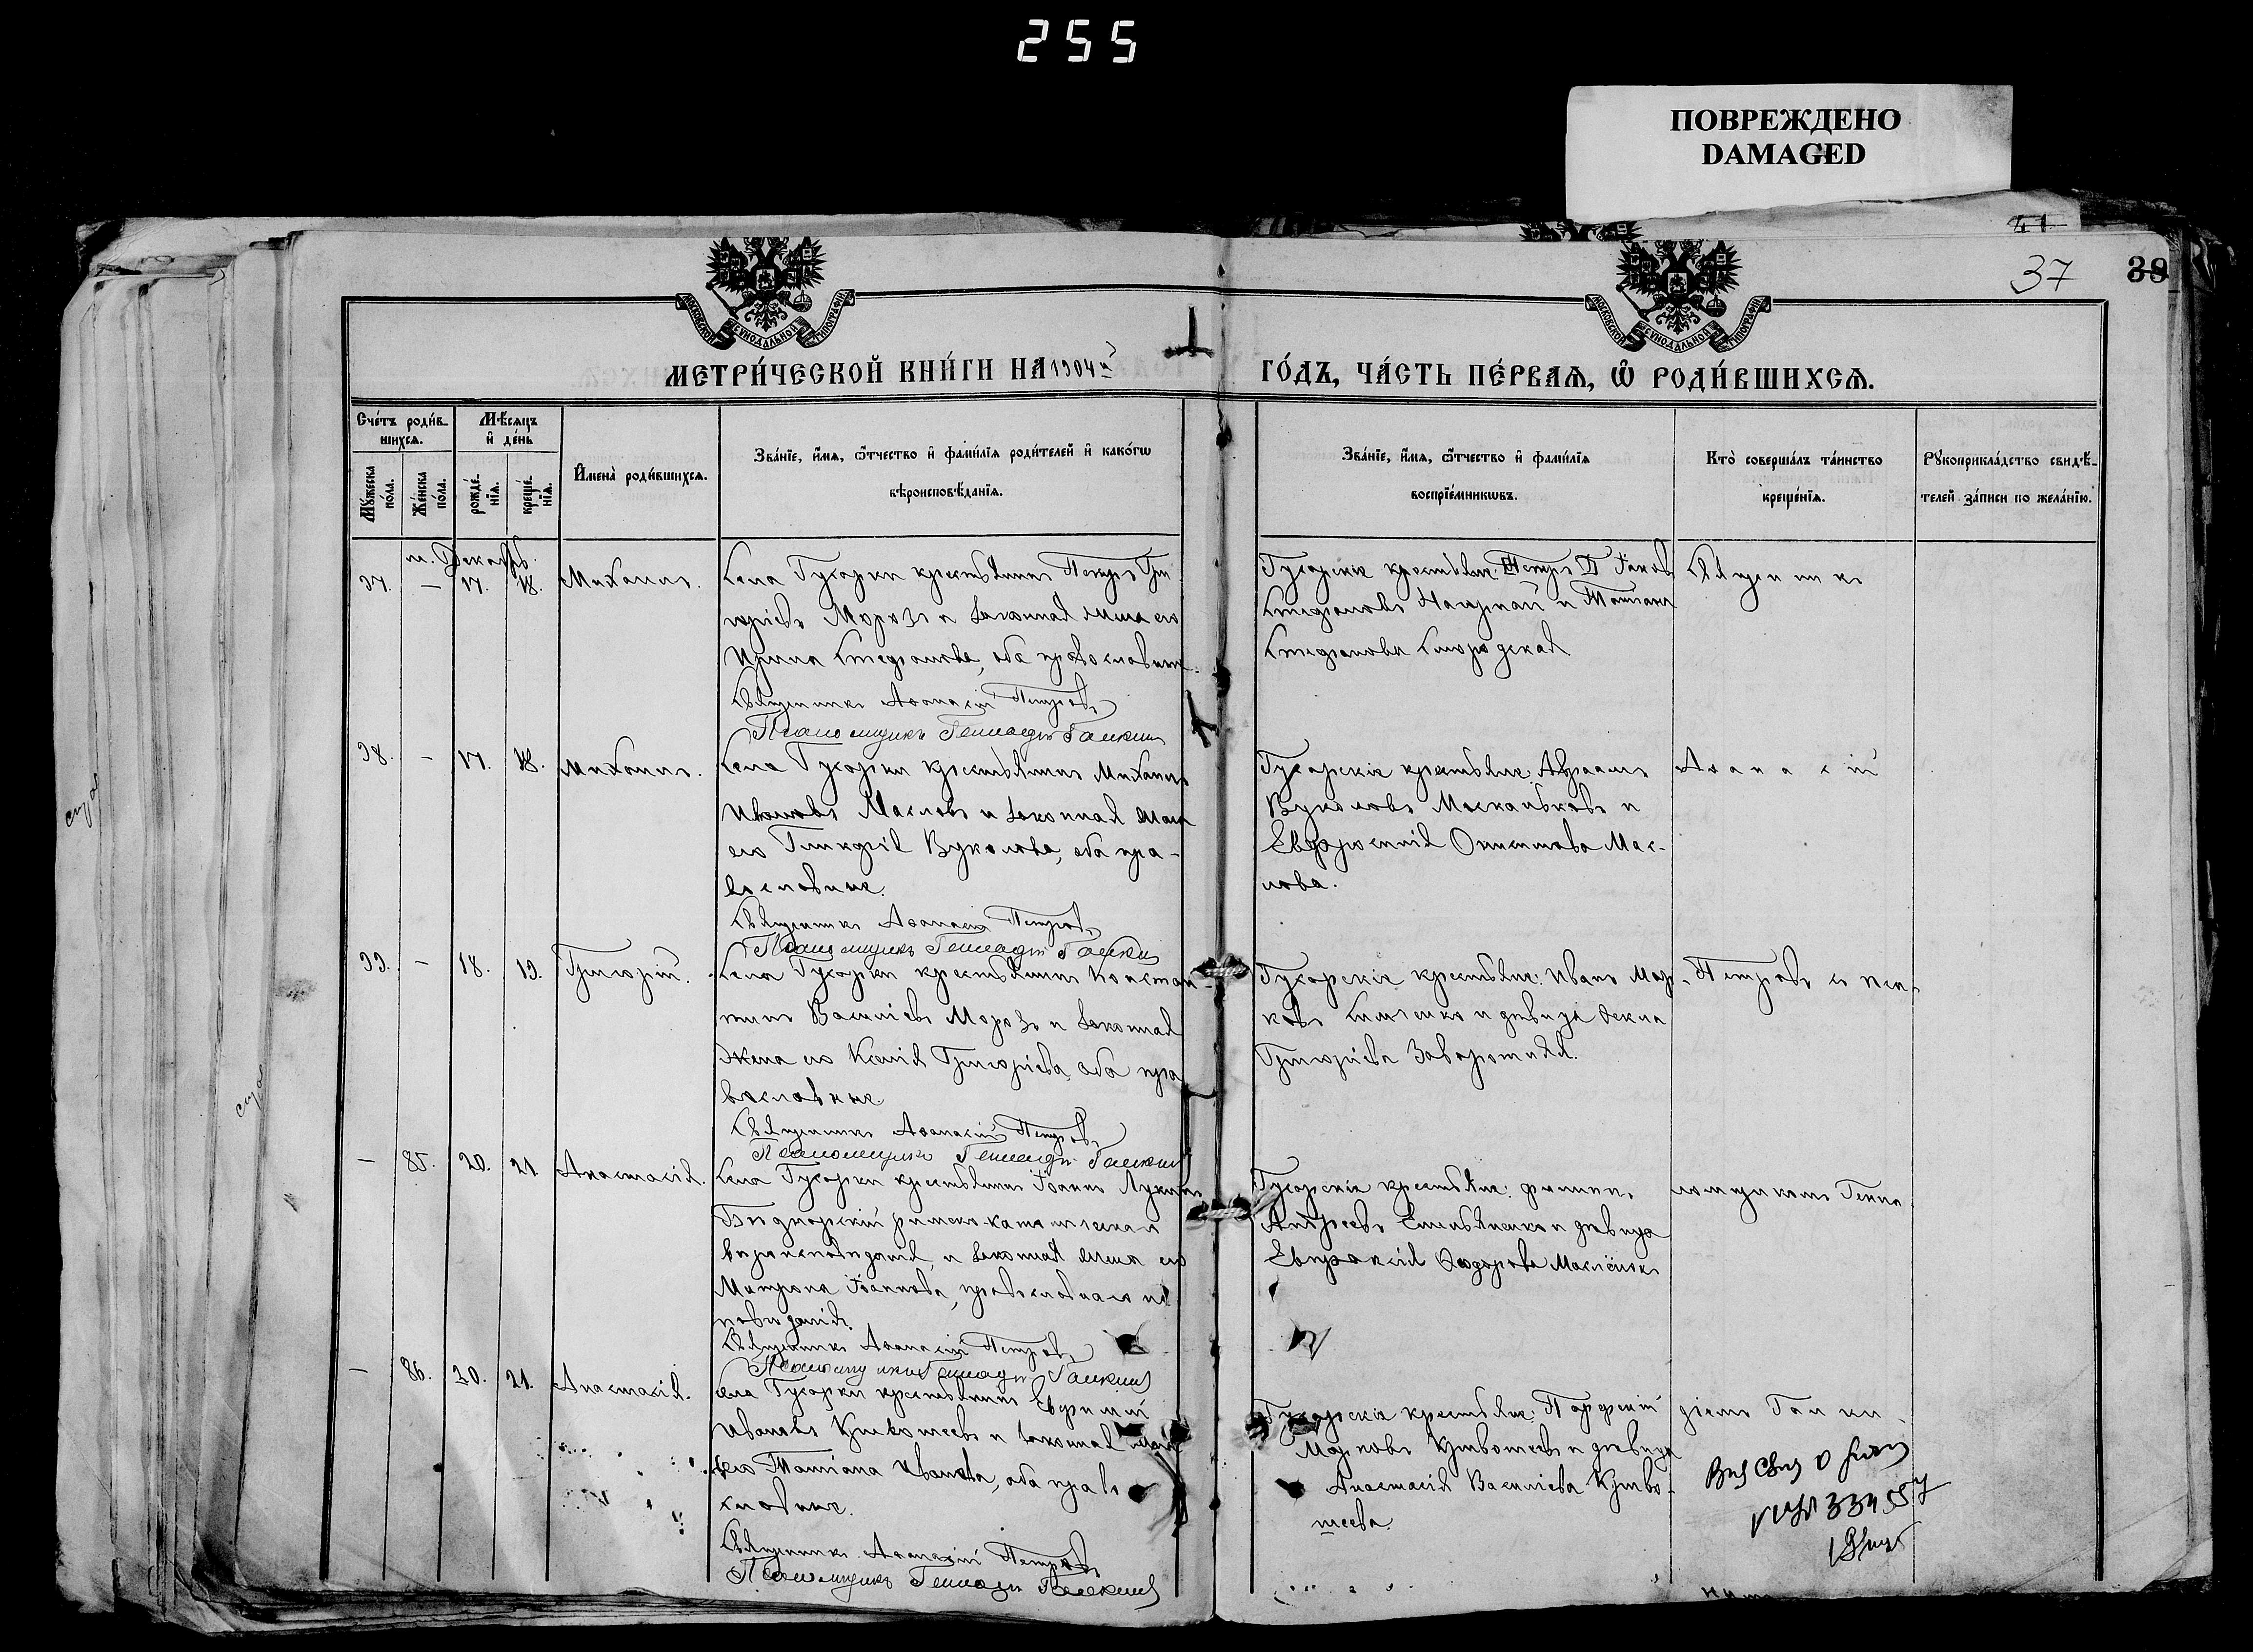 255
ПОВРЕЖДЕНО
DAMAGED
41
37 38
МОСКОВСКОЙ СѴНОДАЛЬНОЙ ТИПОГРАФІИ
МОСКОВСКОЙ СѴНОДАЛЬНОЙ ТИПОГРАФІИ
МЕТРИ́ЧЕСКОЙ КНИ́ГИ НА 1904й ГО́ДЪ, ЧА́СТЬ ПЕ́РВАѦ, Ѽ РОДИ́ВШИХСѦ.
Сче́тъ роди́в-
шихсѧ.
Мꙋ́жеска по́ла.
Же́нска по́ла.
Мѣ́сѧцъ
и де́нь
рожде́нїѧ.
креще́нїѧ.
И҆мена̀ роди́вшихсѧ.
Зва́нїе, и҆́мѧ, ѻ҆́тчество и҆ фами́лїѧ роди́телей и҆ како́гѡ
вѣроисповѣ́данїѧ.
Зва́нїе, и҆́мѧ, ѻ҆́тчество и҆ фами́лїѧ
воспрїе́мникѡвъ.
Кто̀ соверша́лъ та́инство
креще́нїѧ.
Рꙋкоприкла́дство свидѣ́-
телей за́писи по жела́нїю.
м. Декабрь.
97. — 17. 18. Михаилъ.
Села Гусарки крестьянинъ Петръ Гри
горіевъ Морозъ и законная жена его
Ирина Стефанова, оба православные.
Священникъ Аѳанасій Петровъ
Псаломщикъ Геннадій Галкинъ
Гусарскіе крестьяне: Петръ Іаковъ
Стефановъ и Татіана
Стефанова
Священникъ
98. — 17. 18. Михаилъ.
Села Гусарки крестьянинъ Михаилъ
Ивановъ Масловъ и законная жена
его Гликерія Вуколова, оба пра-
вославные.
Священникъ Аѳанасій Петровъ
Псаломщикъ Геннадій Галкинъ
Гусарскіе крестьяне: Авраамъ
Вуколовъ Москальковъ и
Евдокія Онисимова Мас-
лова.
Аѳанасій
99. — 18. 19. Григорій.
Села Гусарки крестьянинъ Констан-
тинъ Василіевъ Морозъ и законная
жена его Ксенія Григоріева, оба пра
вославные.
Священникъ Аѳанасій Петровъ
Псаломщикъ Геннадій Галкинъ
Гусарскіе крестьяне: Иванъ Мар-
ковъ и дѣвица Ѳекла
Григоріева Заворотняя.
Петровъ съ пса-
— 85. 20. 21. Анастасія.
Села Гусарки крестьянинъ Іоаннъ Лукинъ
римско-католическаго
вѣроисповѣданія, и законная жена его
Матрона Іоаннова, православнаго ис
повѣданія.
Священникъ Аѳанасій Петровъ
Псаломщикъ Геннадій Галкинъ
Гусарскіе крестьяне: Филиппъ
Андреевъ Емельяненко и дѣвица
Евпраксія Ѳеодорова
ломщикомъ Генна
— 86. 20. 21. Анастасія.
Села Гусарки крестьянинъ Евфимій
Ивановъ Кривошеевъ и законная жена
его Татіана Иванова, оба право
славные.
Священникъ Аѳанасій Петровъ
Псаломщикъ Геннадій Галкинъ
Гусарскіе крестьяне: Парфеній
Марковъ Кривошеевъ и дѣвица
Анастасія Василіева Криво-
шеева.
діемъ Галки